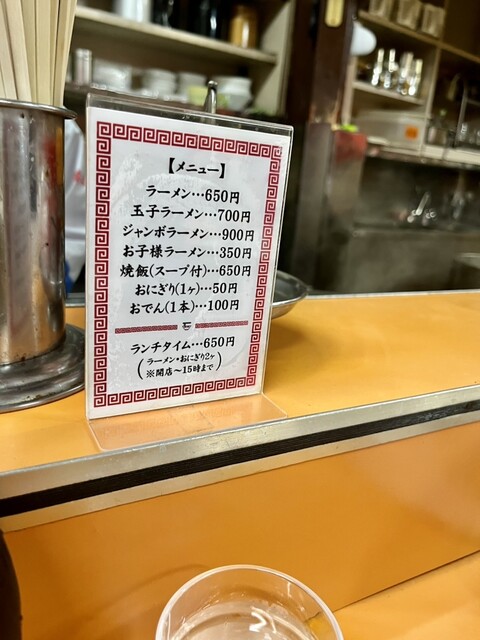 【メニュー】
ラーメン…650円
玉子ラーメン…700円
ジャンボラーメン…900円
お子様ラーメン…350円
焼飯(スープ付)…650円
おにぎり(1ヶ)…50円
おでん(1本)…100円
ランチタイム…650円
(ラーメン・おにぎり2ヶ
※開店～15時まで)